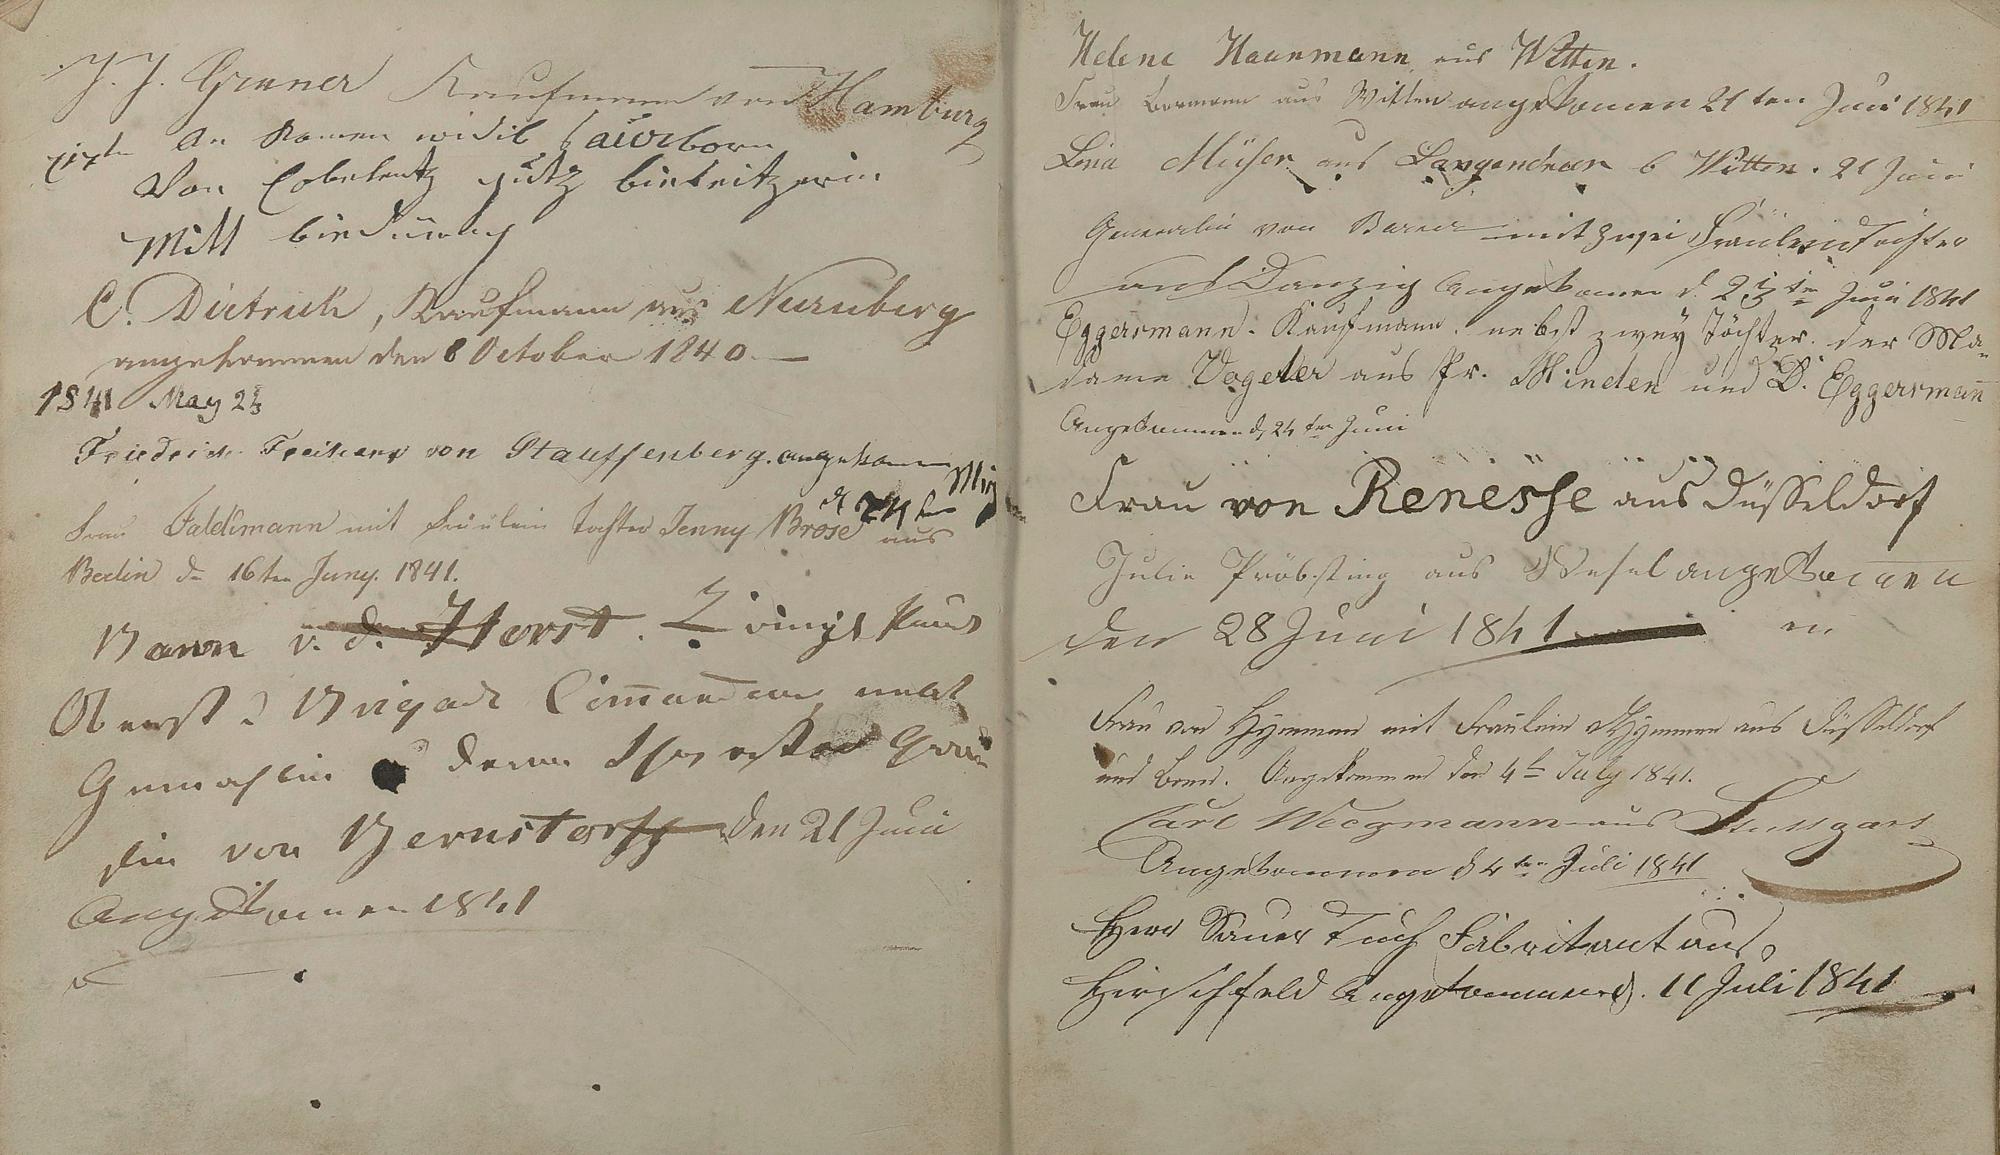 J. J. Gruner Kaufmann von Hamburg
An Komen
Von Cobelentz gutz
Mitt biedinung
C. Dietrich, Kaufmann aus Nürnberg
angekommen den 8 October 1840.
1841 May 25
Friedrich Freiherr von Stauffenberg. angekomm
d 24ten May
Frau Feldtmann mit Fräulein Tochter Jenny Brose aus
Berlin d. 16ten Juny. 1841.
Baron v. d. Horst.
Oberst & Brigade Commandeur nebst
Gemahlin deren Schwester Gräfin
von Bernstorff den 21 Juni
Angekomen 1841
Helene Haarmann aus Witten.
Frau Bormann aus Witten angekomen 21ten Juni 1841
Lina Müser aus Langendreer b Witten. 21 Juni
Generalin von Barner mit zwei Fräulein Töchter
aus Danzig Angekomen d. 23te Juni 1841
Eggersmann. Kaufmann. nebst zwey Töchter. der Ma-
dame Vogeler aus Pr. Minden und D. Eggersmann
Angekommen d 24ten Juni
Frau von Renesse aus Düsseldorf
Julie Pröbsting aus Wesel angekomen
den 28 Juni 1841
Frau von Hymmen mit Fräulein Hymmen aus Düsseldorf
und Bonn. Angekommen den 4t July 1841.
Carl Weegmann aus Stuttgart
Angekommen d 4ten Juli 1841
Herr Sauer Tuch Fabrikant aus
Hirschfeld Angekommen d. 11 Juli 1841